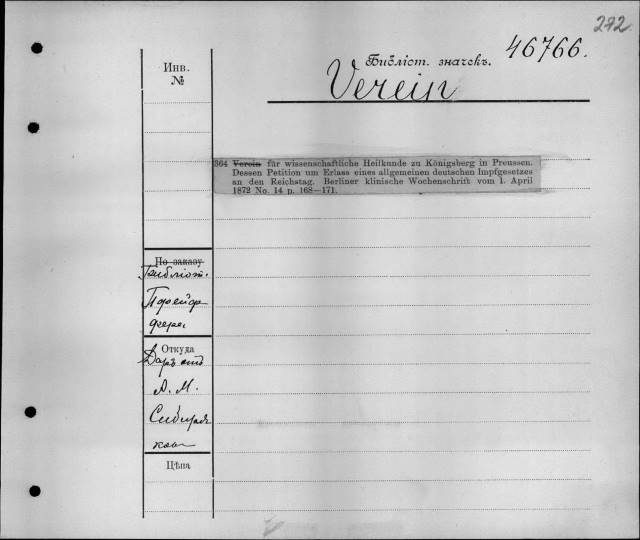 272
Инв.
№
Библіот. значекъ. 46766.
Verein
364 Verein für wissenschaftliche Heilkunde zu Königsberg in Preussen.
Dessen Petition um Erlass eines allgemeinen deutschen Impfgesetzes
an den Reichstag. Berliner klinische Wochenschrift vom 1. April
1872 No. 14 p. 168—171.
По заказу
Библіот.
Пфейф
фера
Откуда
Даръ отъ
А. М.
Сибиряк
Цѣна